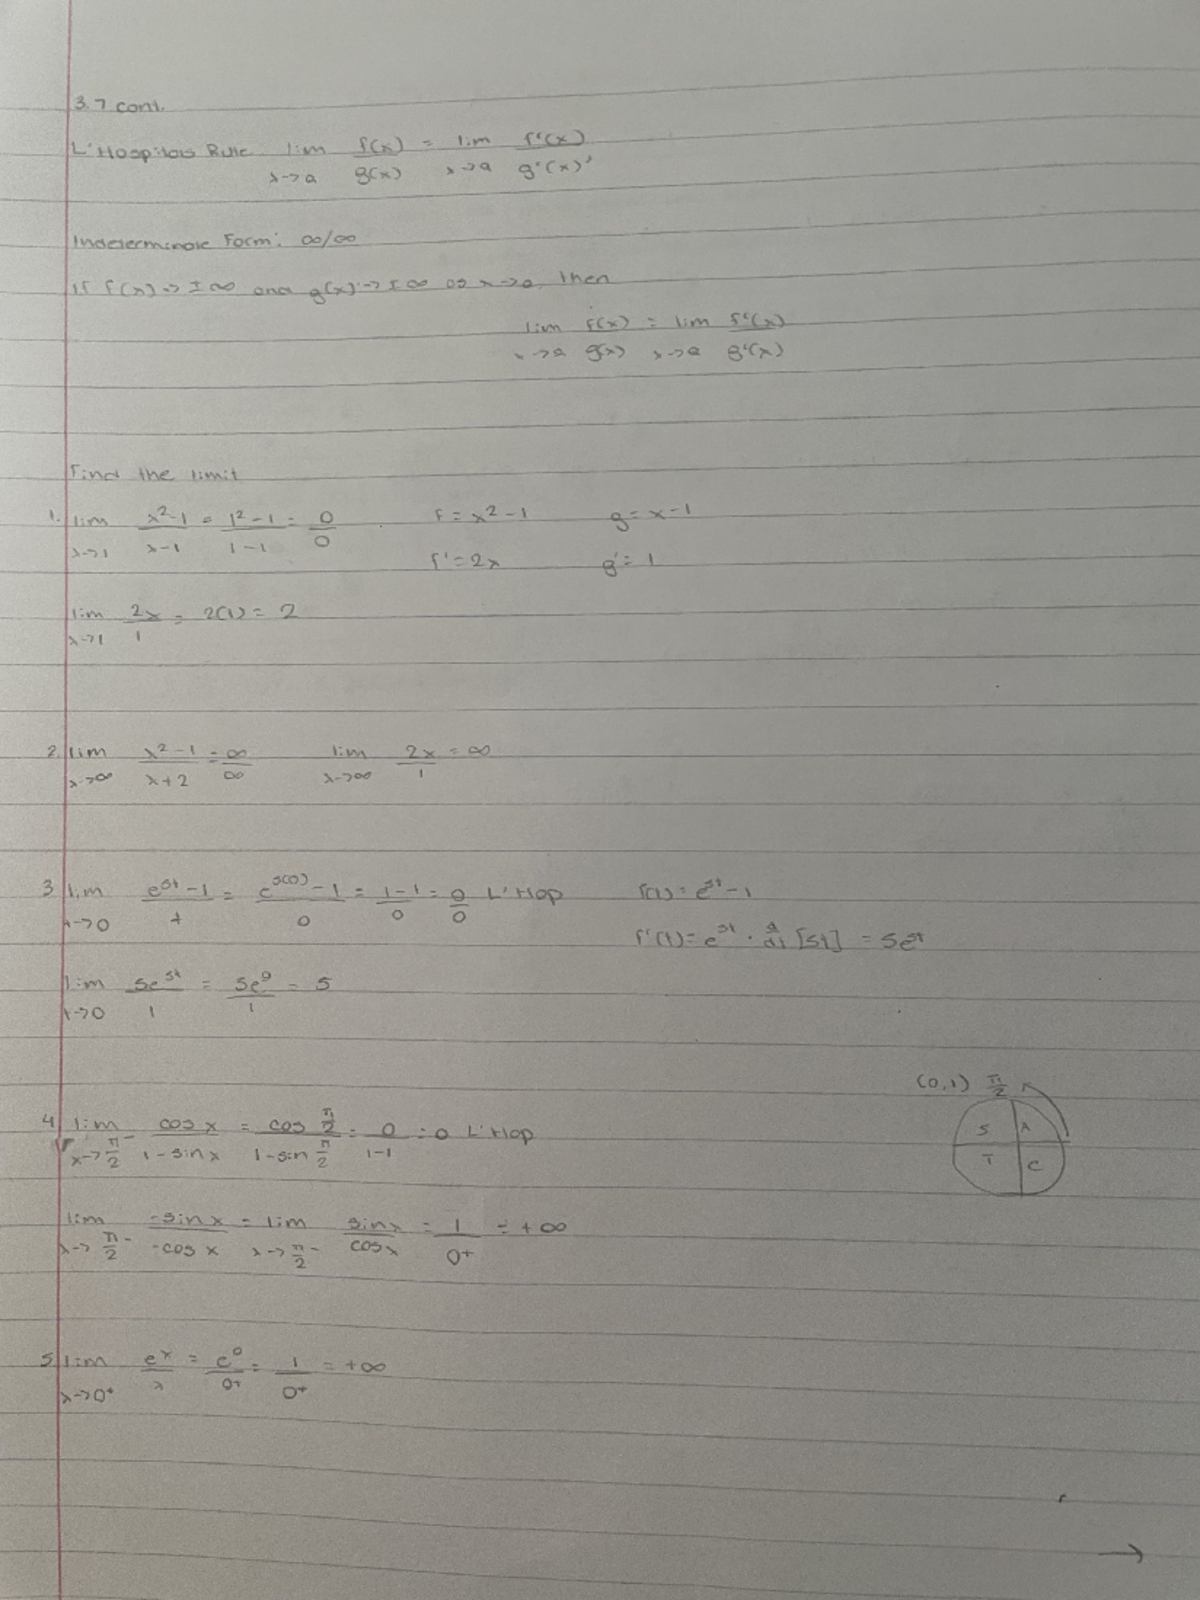 3.7 cont.
L'Hospitals Rule lim x→a f(x)/g(x) = lim x→a f'(x)/g'(x)'
Indeterminate Form: ∞/∞
If f(x)→±∞ and g(x)→±∞ as x→a, then
lim x→a f(x)/g(x) = lim x→a f'(x)/g'(x)
Find the limit
1. lim x→1 x²-1/x-1 = 1²-1/1-1 = 0/0 f = x²-1 g = x-1
f' = 2x g' = 1
lim x→1 2x/1 = 2(1) = 2
2. lim x→∞ x²-1/x+2 = ∞/∞ lim x→∞ 2x/1 = ∞
3. lim t→0 e^5t-1/t = e^5(0)-1/0 = 1-1/0 = 0/0 L'Hop f(t) = e^5t-1
f'(t) = e^5t · d/dt [5t] = 5e^5t
lim t→0 5e^5t/1 = 5e^0/1 = 5
(0,1) π/2
4. lim x→π/2⁻ cos x/1-sin x = cos π/2/1-sin π/2 = 0/1-1 = 0 L'Hop
S A
T C
lim x→π/2⁻ -sin x/-cos x = lim x→π/2⁻ sin x/cos x = 1/0⁺ = +∞
5. lim x→0⁺ e^x/x = e^0/0⁺ = 1/0⁺ = +∞
→